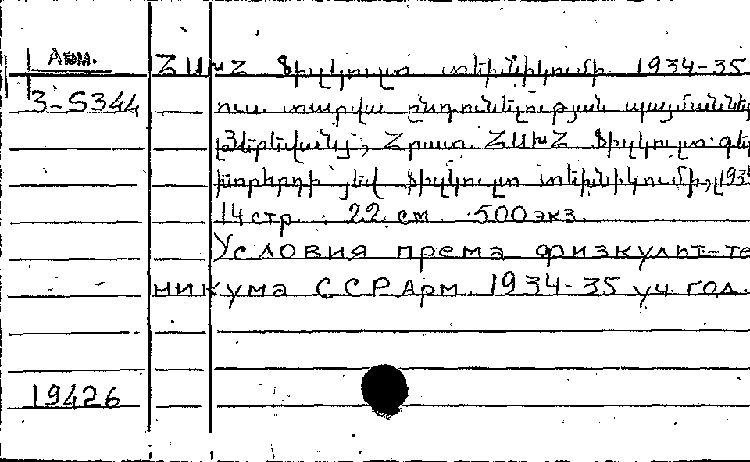 Арм. ՀՍԽՀ Ֆիզկուլտ տեխնիկումի 1934-35
3-5344 ուս. տարվա ընդունելության պայմաններ
[Յերեվան], Հրատ. ՀՍԽՀ Ֆիզկուլտ գե
խորհրդի յեվ Ֆիզկուլտ տեխնիկումի, 1934
14 стр. 22 см 500 экз.
Условия према физкульт-те
никума ССРАрм. 1934-35 уч. год.
19426